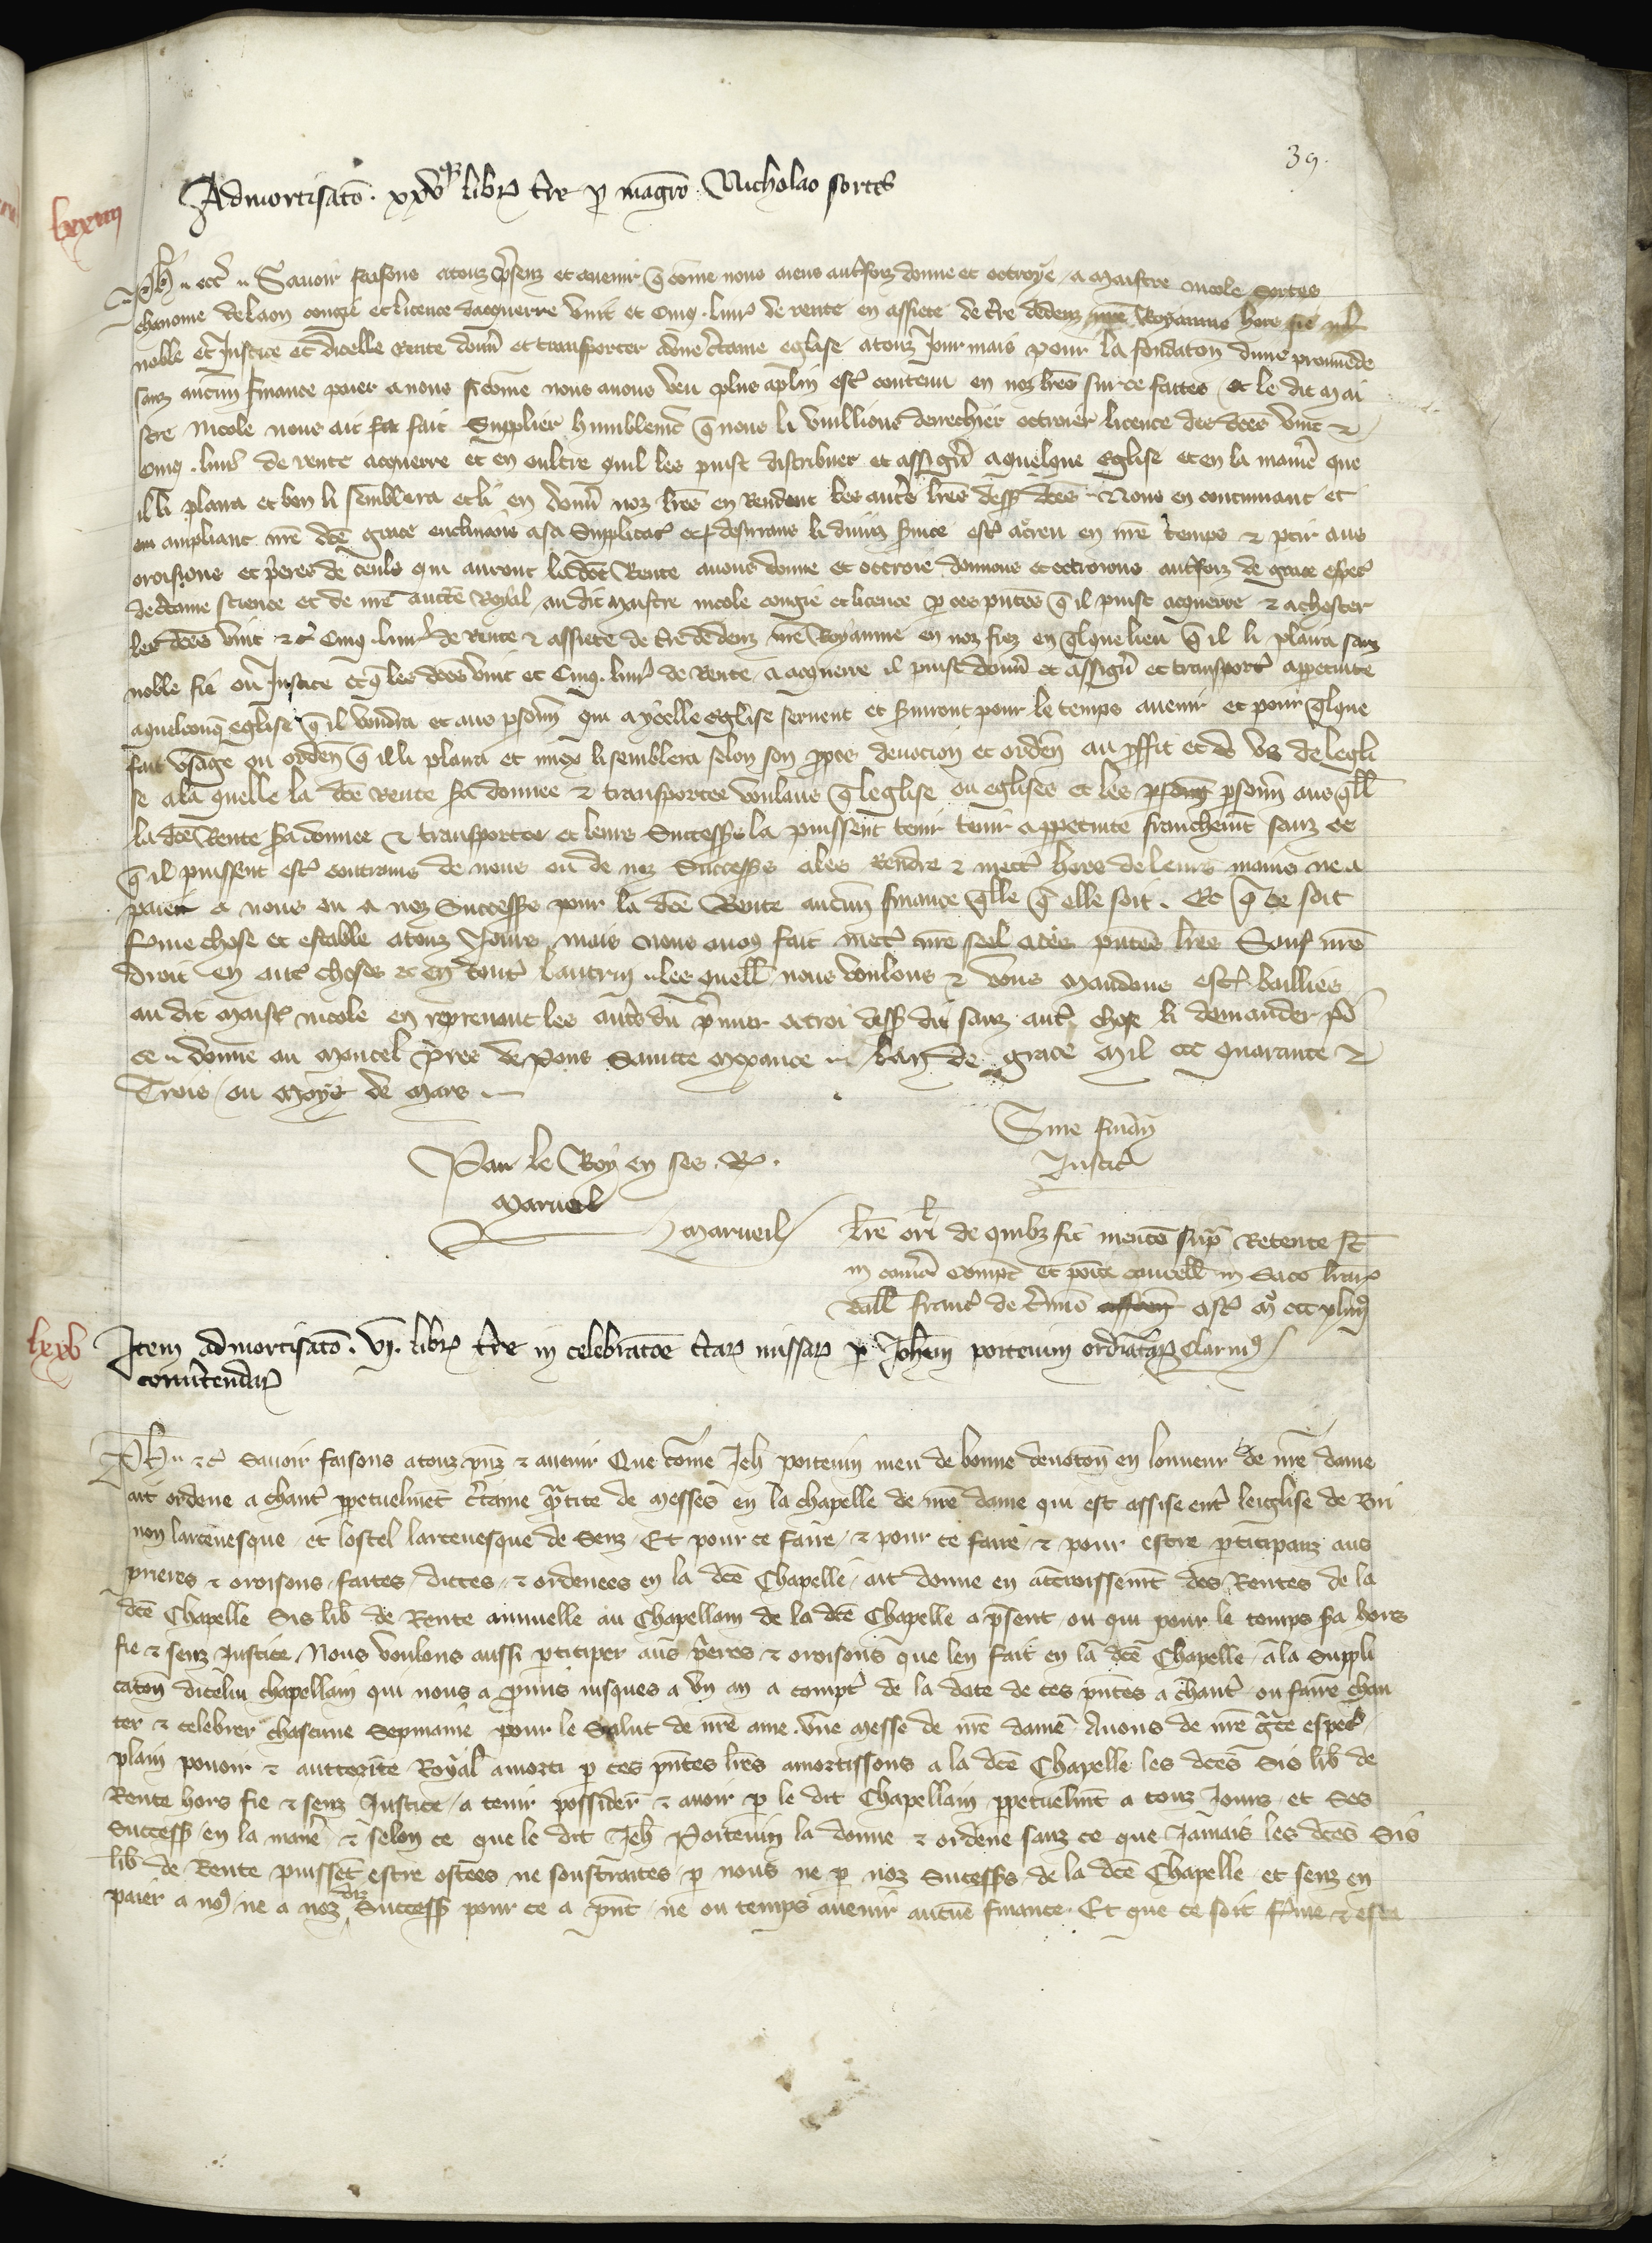 39.
lxxiiii
Admortisatō. xxv libr͛ t̄re p̱ magr̄o Nicholao sortes
Ph̄ .. etc̄ .. Savoir faisons a touz p̄senz et avenir q̄ cōme nous aiens aut̄foiz donne et octroye a maistre nicole Sortes
chanoine de laon congie et licence dacquerre vint et cinq livr̄ de rente en assiete de t̄re dedenz nr̄e Royaume hors fie
noble et Justice et dicelle rente don̄ et transporter a une c̄taine eglise a touz Jour mais pour la fondatōn dune provende
sanz aucun finance paier a nous si cōme nous avons veu plus aplain est̄ contenu en noz lr̄es sur ce faites et le dit mai
stre Nicole nous ait fait Supplier humblemēt q̄ nous li vuillions derechief octroier licence des dc̄es vint &
cinq livr̄ de rente acquerre et en oultre quil les puist distribuer et assigñ a quelque eglise et en la manie͛ que
il li plaira et bon li semblera et li en don̄ noz lr̄es en Rendent les aut̄s lr̄es dess̄ dc̄es. Nous en continuant et
en ampliant nr̄e dc̄e grace enclinans a sa Supplicat̄ et desirans li divin s̄vice est̄ acreu en nr̄e temps & p̱tir aus
oroisons et p̄eres de ceuls qui auront la dc̄e Rente avons donne et octroie donnons et octroions aut̄foiz de grace espec̄
de c̄taine science et de nr̄e auct̄e Royal au dit maistre nicole congie et licence p̱ ces pñtes q̄ il puist acquerre & achester
les dc̄es vint & cinq livr̄ de Rente & assiete de t̄re dedenz nr̄e Royaume en noz fiez en q̄lque lieu q̄ il li plaira sanz
noble fie ou Justice et q̄ les dc̄es vint et cinq. livr̄ de Rente a acquerre il puist don̄ et assigñ et transport̄ a p̱petuite
a quelconq̄ eglise q̄ il voudra et aus p̱son̄ qui a ycelle eglise servent et s̄viront pour le temps avenir et pour q̄lque
fait usage ou orden̄ q̄ il li plaira et miex li semblera selon son p̱pos devocion et orden̄ au p̱ffit et de us de legli
se a la quelle la dc̄e rente s̄a donnee & transportee voulans q̄ leglise ou eglises et les p̱son̄ aus q̄ll
la dc̄e Rente s̄a donnee & transportee et leurs Success̄s la puissent tenir tenir a p̱petuite franchemt̄ sanz ce
q̄ il puissent est̄ contrains de nous ou de noz Success̄s a les rendre & mect̄ hors de leurs mains ne a
paier a nous ou a noz Success̄s pour la dc̄e Rente aucun finance q̄lle q̄ elle soit. Et q̄ ce soit
ferme chose et estable a touz Jours mais nous avons fait mect̄ nr̄e seel a ces pñtes lr̄es Sauf nr̄e
droit en aut̄ choses et en tout̄ lautrui .. les quell nous voulons & vous mandons est̄ baillies
au dit maist̄ nicole en reprenant les aut̄s du p̄mier octroi dess̄ dit sanz aut̄ chose li demander p̱
ce .. donne au moncel p̄res de pons Sainte mexance .. lan de grace mil ccc quarante &
Trois ou moys de mars ..
Sine finañ
Justic̄
Par le Roy en ses. R̄.
Marueil
Marueil
lr̄e orīl de quibz fit mentō sup̄ Retente st̄
in cam̄a Compt̄ et posite cancell in Saco lr̄ar͛
vall franc̄ de t̄mio ast̄ mo ccc xliiiio
lxxv
Item admortisatō. vj. libr͛ t̄re in celebratōe c̄tar͛ missar͛ p̱ Joh̄em poitevini ordīatar͛
convertendar͛
Ph̄ .. &c̄ Savoir faisons a touz pñz & avenir Que cōme Jeh̄ poitevin meu de bonne devotōn en lonneur de nr̄e dame
ait ordene a chant̄ p̱petuelmēt c̄taine q̄ntite de messes en la chapelle de nr̄e dame qui est assise ent̄ leiglise de Bri
non larcevesque et lostel larcevesque de Senz. Et pour ce faire & pour ce faire & pour estre p̱ticipanz aus
prieres & oroisons faites dictes & ordenees en la dc̄e Chapelle ait donne en accroissemt̄ des Rentes de la
dc̄e Chapelle Sis lib̄ de Rente annuelle au Chapellain de la dc̄e Chapelle a p̄sent ou qui pour le temps s̄a hors
fie & senz Justice. Nous voulons aussi p̱ticiper aus p̄eres & oroisons que len fait en la dc̄e Chapelle a la Suppli
catōn dicelui chapellain qui nous a p̱mis jusques a un an a compt̄ de la date de ces pñtes a chant̄ ou faire chan
ter & celebrer chascune Sepmaine pour le Salut de nr̄e ame une messe de nr̄e dame Avons de nr̄e grāce espec̄
plain povoir & auttorite Royal amorti p̱ ces pñtes lr̄es amortissons a la dc̄e Chapelle les dc̄es Sis lib̄ de
Rente hors fie & senz Justice a tenir possider & avoir p̱ le dit Chapellain p̱petuelmt̄ a touz Jours et Ses
Success̄ en la manie͛ & selon ce que le dit Jeh̄ Poitevin la donne & ordene sanz ce que Jamais les dc̄es Sis
lib̄ de Rente puissēt estre ostees ne soustraites p̱ nous ne p̱ noz Sucess̄s de la dc̄e Chapelle et senz en
paier a nous ne a noz diz Success̄ pour ce a pñt ne ou temps avenir aucune finance. Et que ce soit ferme & esta